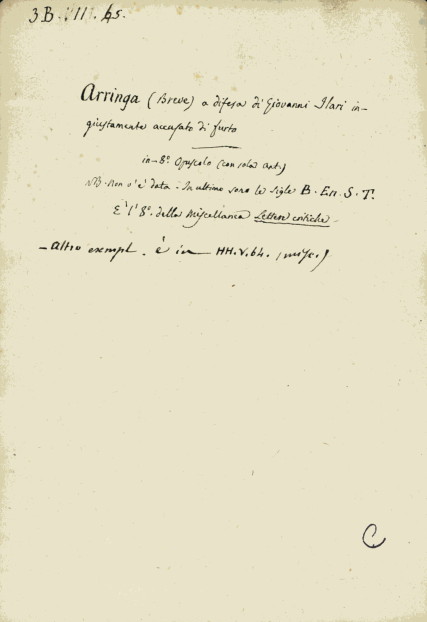 3 B. VIII. 65.
Arringa (Breve) a difesa di Giovanni Ilari in-
giustamente accusato di furto
in-8° Opuscolo (con sola ant.)
NB. non v'è data. In ultimo sono le sigle B. En. S. T.
E' l' 8°. della Miscellanea Lettere critiche.
- Altro exempl. è in HH. V. 64. (misc.)
C